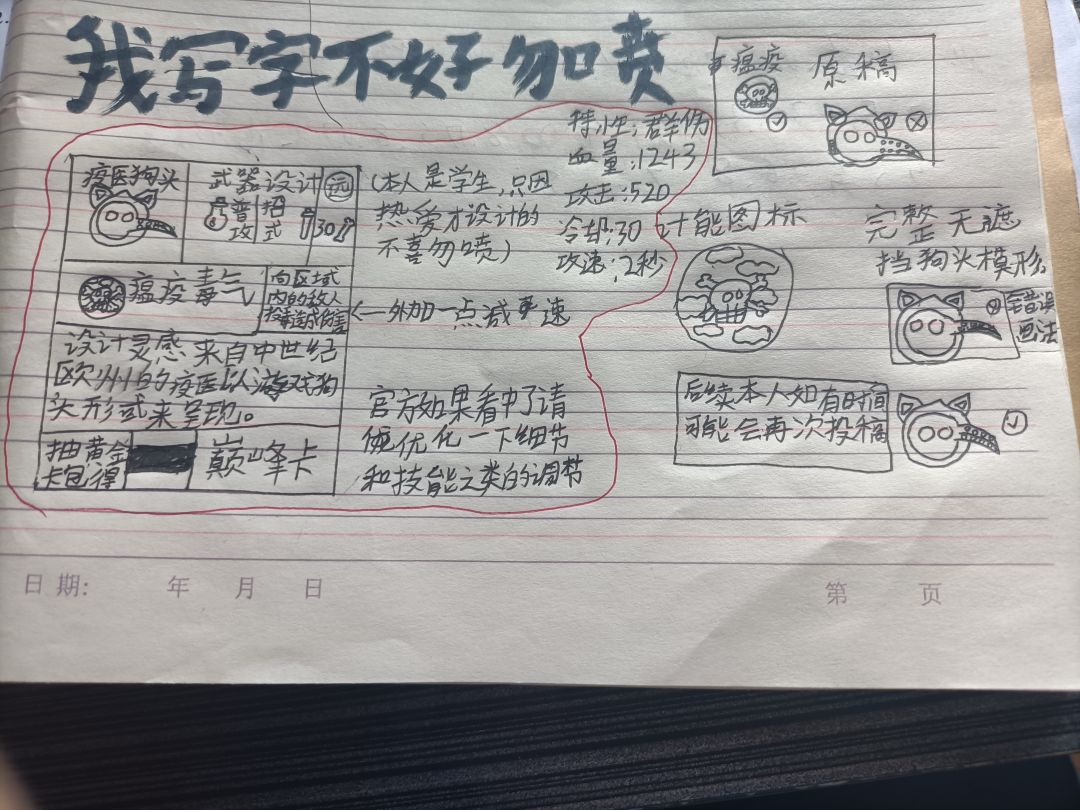 我写字不好勿喷
疫医狗头
武器设计
远
普攻
招式
30
瘟疫毒气
向区域
内的敌人
设计灵感来自中世纪
欧州的疫医以游戏狗
头形式来呈现。
抽黄金
卡包得
巅峰卡
(本人是学生,只因
热爱才设计的
不喜勿喷)
特性:群伤
血量:1243
攻击:520
冷却:30
攻速:2秒
外加一点减速
官方如果看中了请
优化一下细节
和技能之类的调节
瘟疫
原稿
计能图标
完整无遮
挡狗头模形。
错误
画法
后续本人如有时间
可能会再次投稿
日期: 年 月 日
第 页